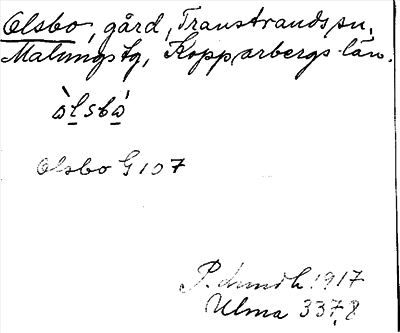 Olsbo, gård, Transtrands sn,
Malungs tg, Kopparbergs län.
òlsbò
Olsbo G 107
P. Lundh 1917
Ulma 337,8